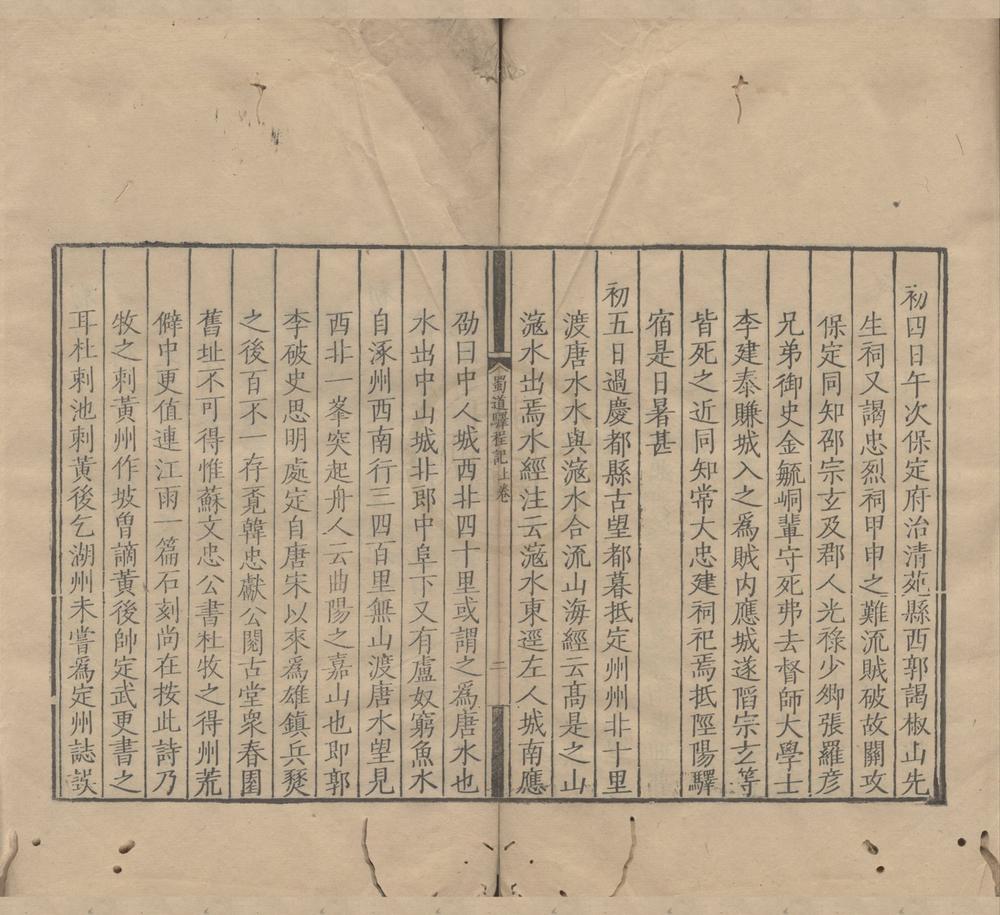 初四日午次保定府治清苑縣西郭謁椒山先
生祠又謁忠烈祠甲申之難流賊破故關攻
保定同知邵宗玄及郡人光祿少卿張羅彥
兄弟御史金毓峒輩守死弗去督師大學士
李建泰賺城入之爲賊內應城遂陷宗玄等
皆死之近同知常大忠建祠祀焉抵陘陽驛
宿是日暑甚
初五日過慶都縣古望都暮抵定州州北十里
渡唐水水與滱水合流山海經云高是之山
滱水出焉水經注云滱水東逕左人城南應
蜀道驛程記上卷
二
劭曰中人城西北四十里或謂之爲唐水也
水出中山城北郎中阜下又有盧奴窮魚水
自涿州西南行三四百里無山渡唐水望見
西北一峯突起舟人云曲陽之嘉山也即郭
李破史思明處定自唐宋以來爲雄鎮兵燹
之後百不一存覔韓忠獻公閱古堂衆春園
舊址不可得惟蘇文忠公書杜牧之得州荒
僻中更值連江雨一篇石刻尚在按此詩乃
牧之刺黃州作坡曾謫黃後帥定武更書之
耳杜刺池刺黃後乞湖州未嘗爲定州誌誤